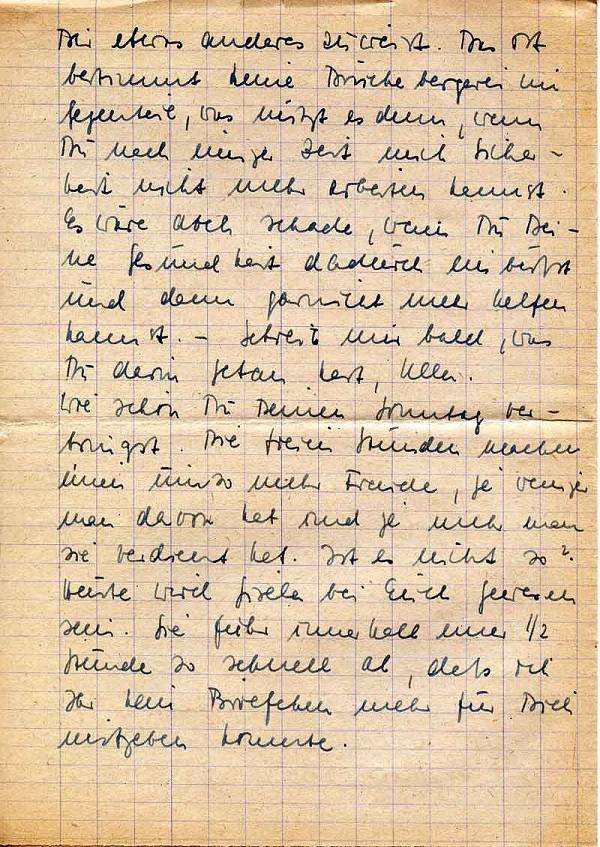 Dir etwas anderes zuweist. Das ist
bestimmt keine Drückebergerei im
Gegenteil, was nützt es denn, wenn
Du nach einiger Zeit mit Sicher-
heit nicht mehr arbeiten kannst.
Es wäre doch schade, wenn Du Dei-
ne Gesundheit dadurch einbüßt
und dann garnicht mehr helfen
kannst. – Schreib mir bald, was
Du darin getan hast, Ulla.
Wie schön Du Deinen Sonntag ver-
bringst. Die freien Stunden machen
einen umso mehr Freude, je weniger
man davon hat und je mehr man
sie verdient hat. Ist es nicht so?
Heute wird Gisela bei Euch gewesen
sein. Sie fuhr innerhalb einer 1/2
Stunde so schnell ab, daß ich
Ihr kein Briefchen mehr für Dich
mitgeben konnte.